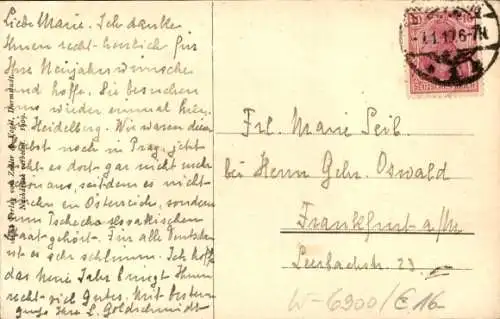 Liebe Marie. Ich danke
Ihnen recht herzlich für
Ihre Neujahrswünsche
und hoffe. Sie besuchen
uns wieder einmal hier.
Heidelberg. Wir waren
selbst noch in Prag, jetzt
es dort gar nicht mehr
aus, seitdem es nicht
in Österreich, sondern
zum Tschechoslovakischen
gehört. Für alle Deutschen
ist es sehr schlimm. Ich hoffe
das neue Jahr bringt Ihnen
recht viel Gutes. Mit besten
Ihre L. Goldschmidt
Verlag von Zedler & Vogel, Darmstadt.
1909.
DEUTSCHES REICH
Frl. Marie Seib.
bei Herrn Gebr. Oswald
Frankfurt a/M
23
W-6900/E16